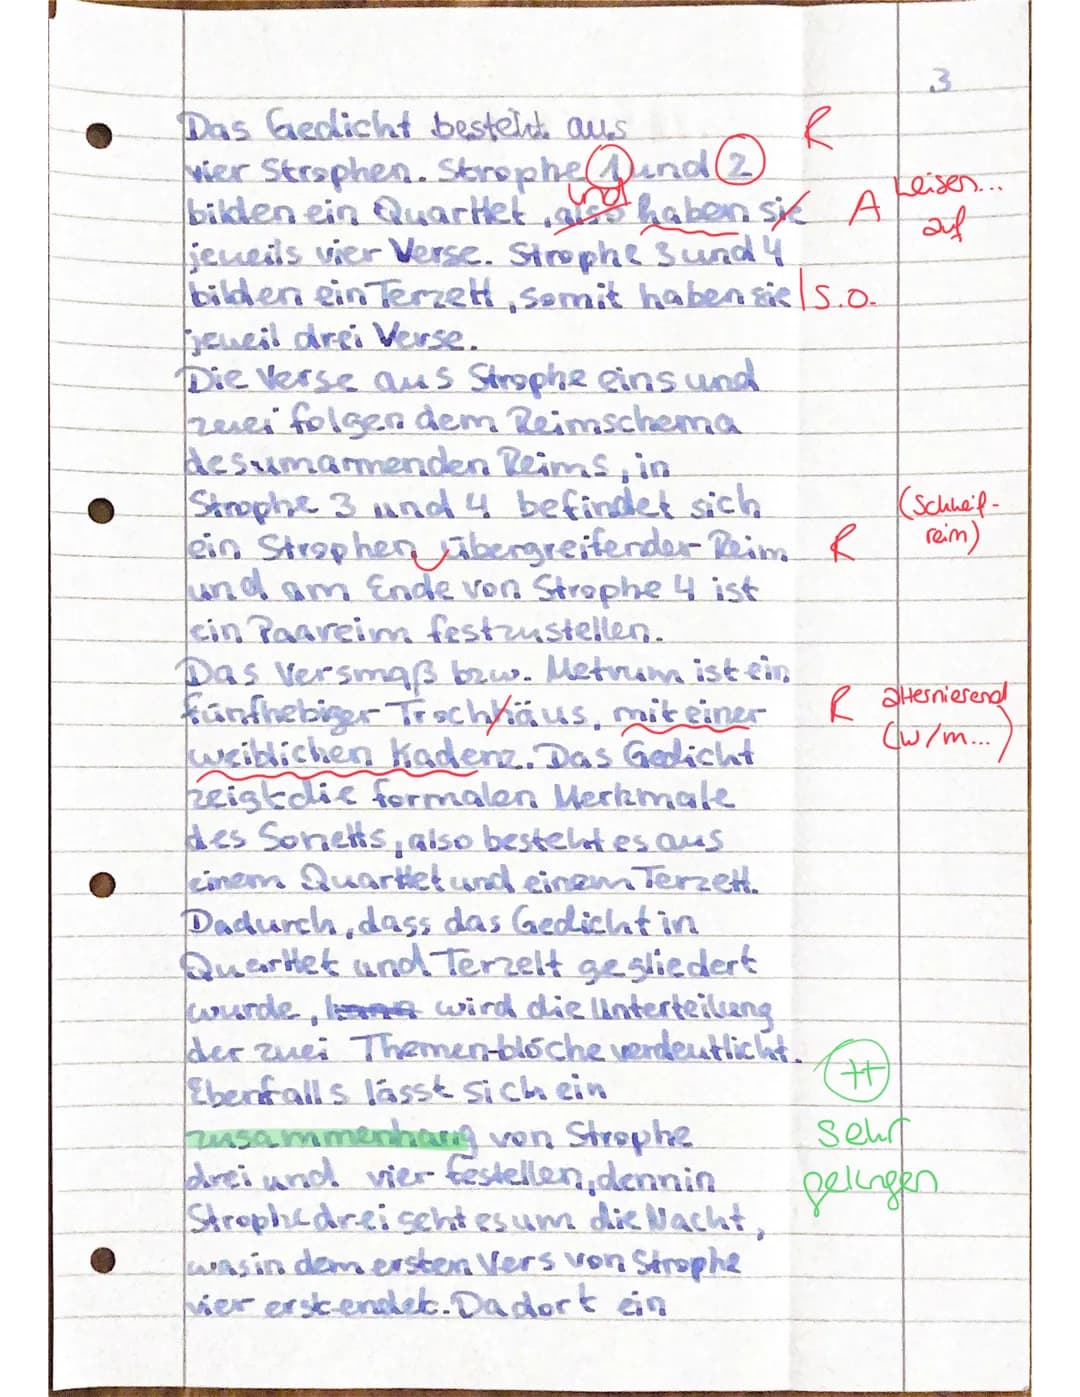 3
Das Gedicht besteht aus R
vier Strophen. Strophe 1 und 2
bilden ein Quartett, also und haben sie A weisen... auf
jeweils vier Verse. Strophe 3 und 4
bilden ein Terzett, somit haben sie s.o.
jeweil drei Verse.
Die Verse aus Strophe eins und
zwei folgen dem Reimschema
des umarmenden Reims, in
Strophe 3 und 4 befindet sich (Schweif-
ein Strophen übergreifender Reim R reim)
und am Ende von Strophe 4 ist
ein Paareim festzustellen.
Das Versmaß bzw. Metrum ist ein
fünfhebiger Trochhäus, mit einer R alternierend
weiblichen Kadenz. Das Gedicht (w/m...)
zeigt die formalen Merkmale
des Sonetts, also besteht es aus
einem Quartett und einem Terzett.
Dadurch, dass das Gedicht in
Quartett und Terzett gegliedert
wurde, kann wird die Unterteilung
der zwei Themen-blöche verdeutlicht.
Ebenfalls lässt sich ein ++
zusammenhang von Strophe sehr
drei und vier festellen, denn in gelungen
Strophe drei geht es um die Nacht,
was in dem ersten Vers von Strophe
vier erst endet. Da dort ein